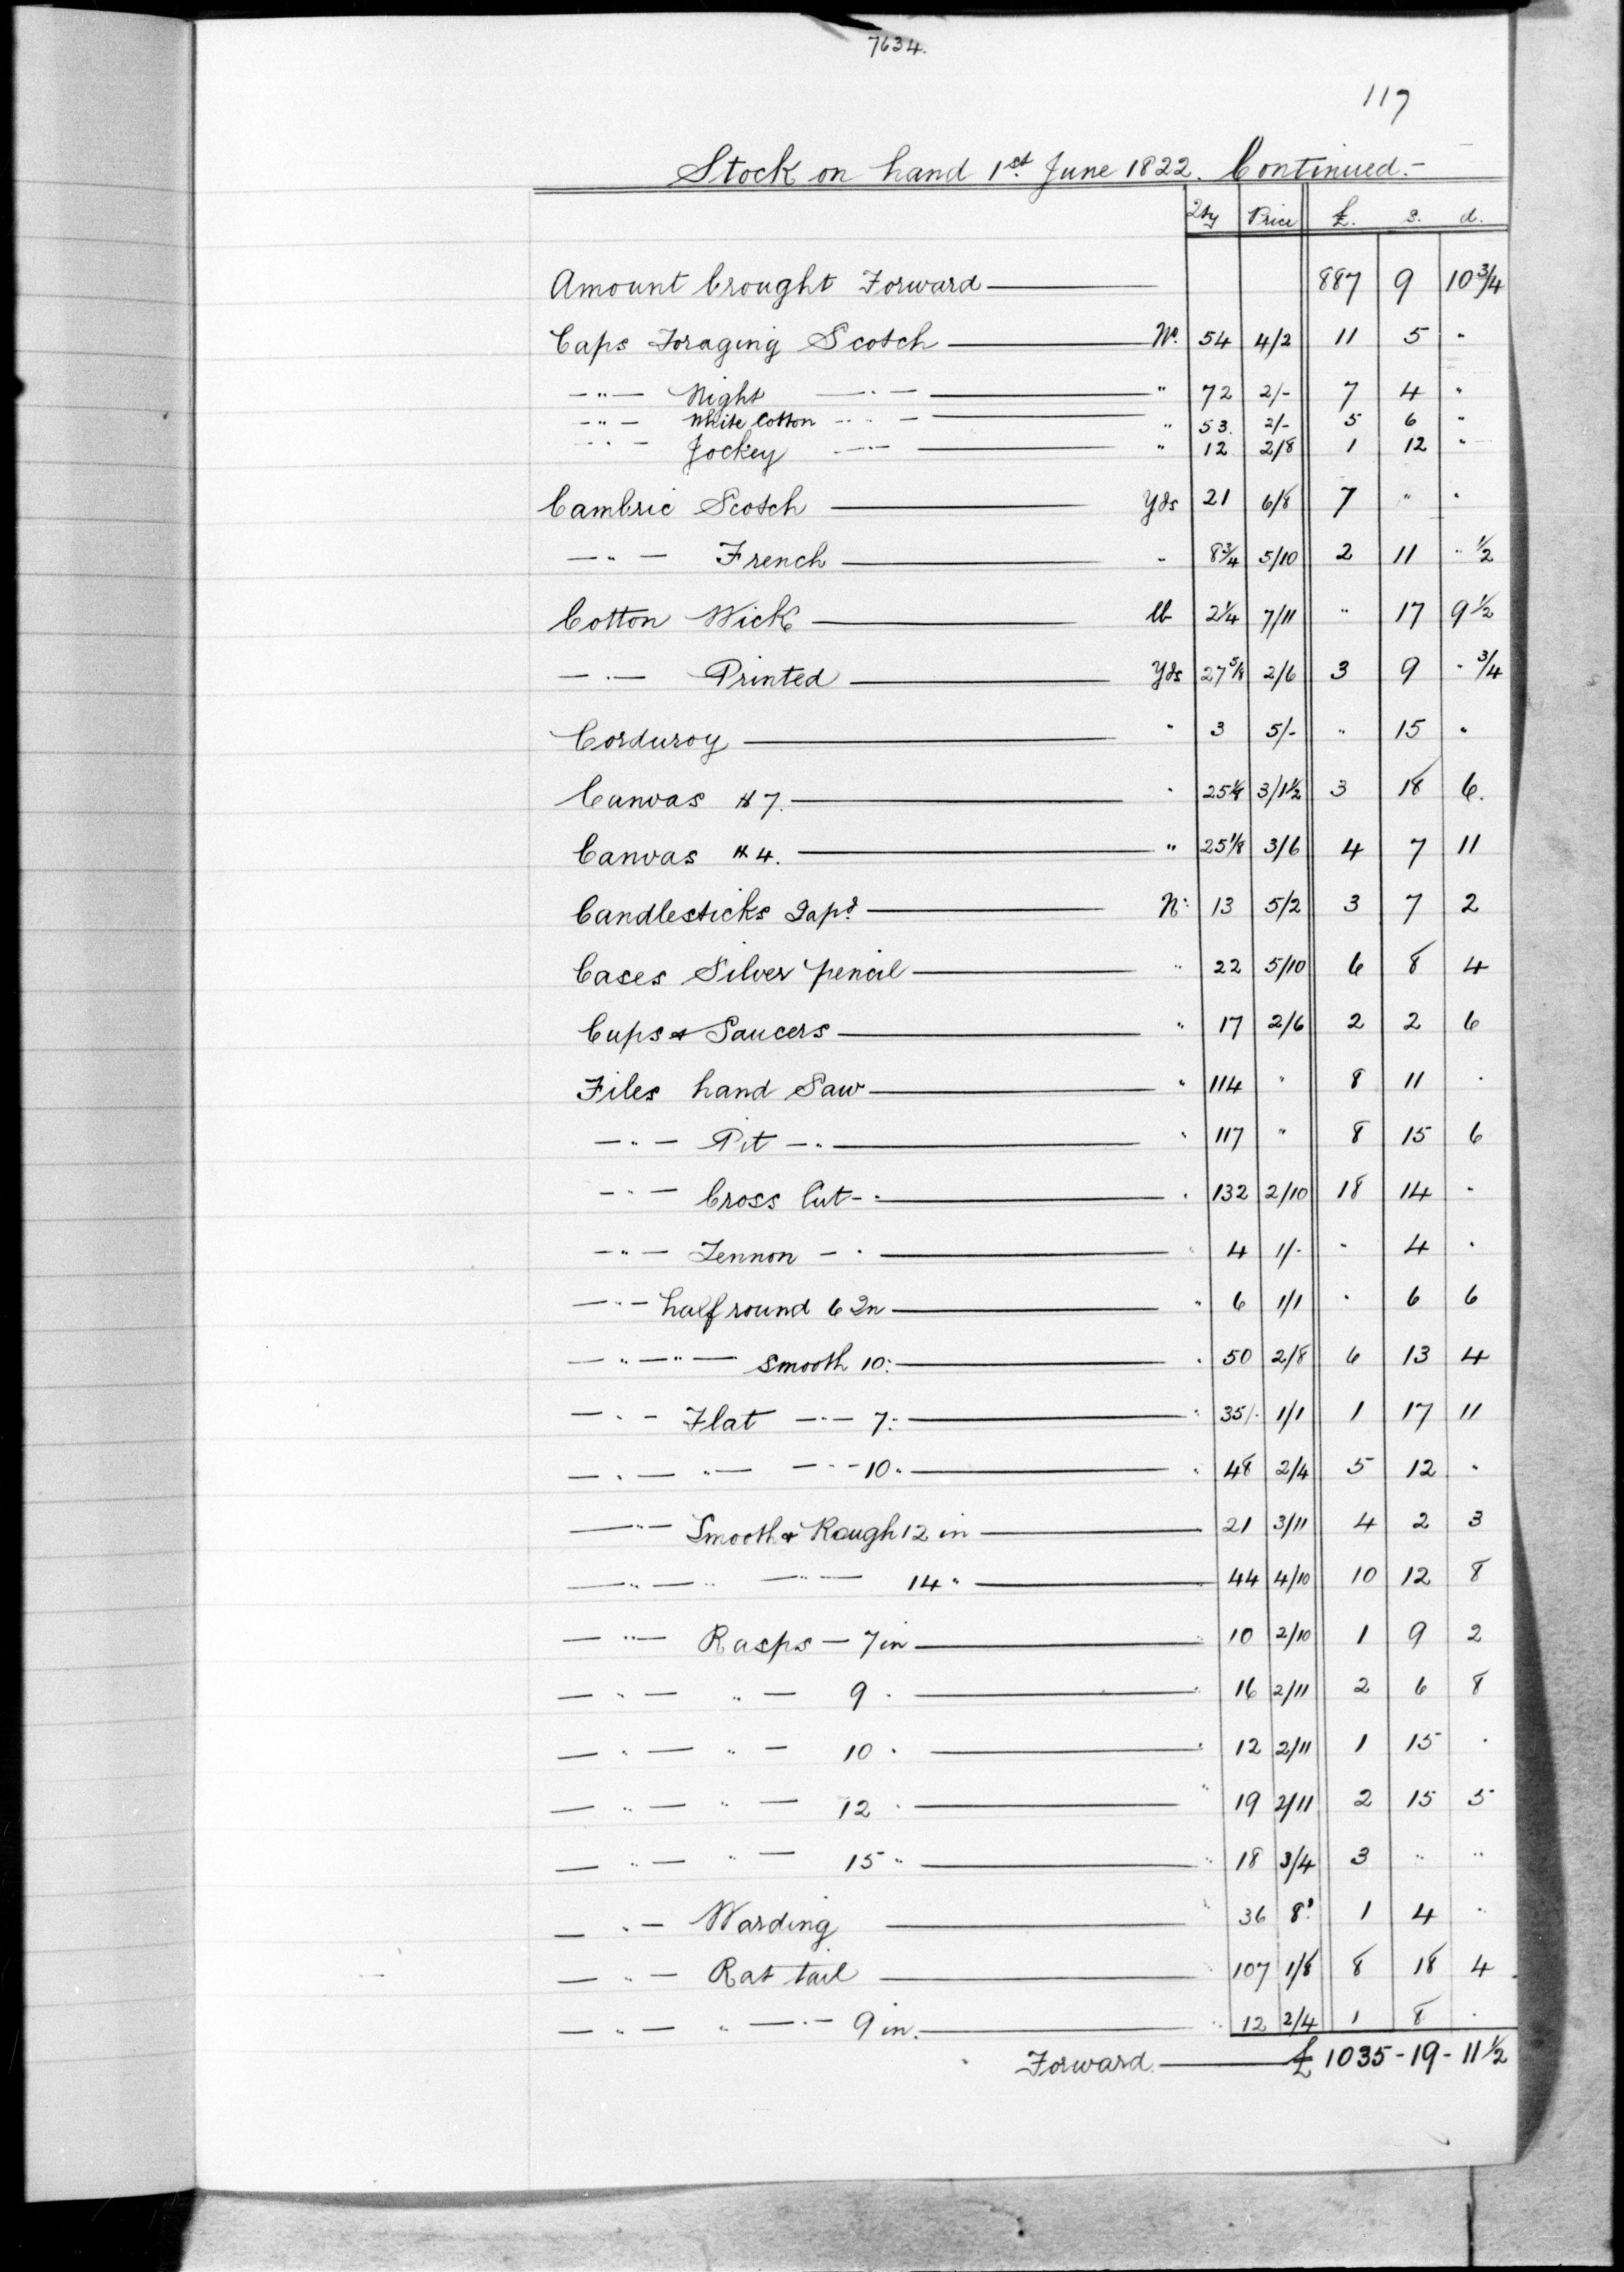 7634.
117
Stock on hand 1st June 1822. Continued.-
Qty Price £. s. d.
Amount brought Forward — 887 9 10 3/4
Caps Foraging Scotch — No. 54 4/2 11 5 "
— " — Night — " — " 72 2/- 7 4 "
— " — White Cotton — " — " 53. 2/- 5 6 "
— " — Jockey — " — " 12 2/8 1 12 "
Cambric Scotch — Yds 21 6/8 7 " "
— " — French — " 8 3/4 5/10 2 11 " 1/2
Cotton Wick — lb 2 1/4 7/11 " 17 9 1/2
— " — Printed — Yds 27 5/8 2/6 3 9 " 3/4
Corduroy — " 3 5/- " 15 "
Canvas # 7. — " 25 1/8 3/1 1/2 3 18 6.
Canvas # 4. — " 25 1/8 3/6 4 7 11
Candlesticks Japd — No: 13 5/2 3 7 2
Cases Silver pencil — " 22 5/10 6 8 4
Cups & Saucers — " 17 2/6 2 2 6
Files hand Saw — " 114 " 8 11 "
— " — Pit — " — " 117 " 8 15 6
— " — Cross Cut - " — " 132 2/10 18 14 "
— " — Tennon — " — " 4 1/- " 4 "
— " — half round 6 In — " 6 1/1 " 6 6
— " — " — Smooth 10: — " 50 2/8 6 13 4
— " — Flat — " — 7: — " 35/. 1/1 1 17 11
— " — " — — " — 10 " — " 48 2/4 5 12 "
— " — Smooth & Rough 12 in — 21 3/11 4 2 3
— " — " — " — 14 " — " 44 4/10 10 12 8
— " — Rasps — 7 in — " 10 2/10 1 9 2
— " — " — 9 " — " 16 2/11 2 6 8
— " — " — 10 " — " 12 2/11 1 15 "
— " — " — 12 " — " 19 2/11 2 15 5
— " — " — 15 " — " 18 3/4 3 " "
— " — Warding — " 36 8d. 1 4 "
— " — Rat tail — " 107 1/8 8 18 4
— " — " — " — 9 in. — " 12 2/4 1 8 "
Forward — £ 1035 - 19 - 11 1/2